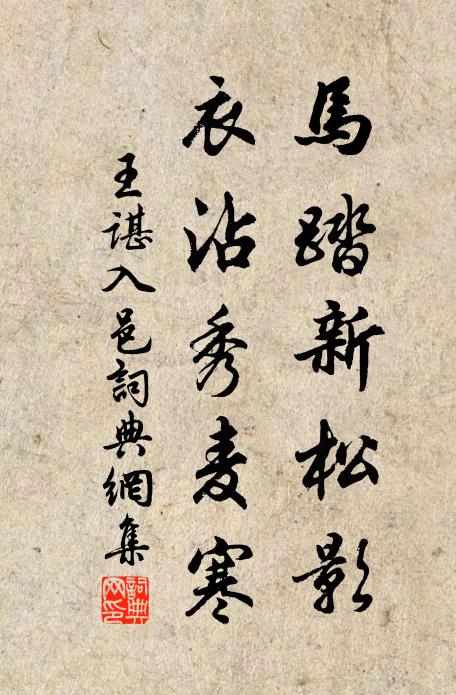 馬踏新松影
衣沾秀麦寒
王諶入邑詞典網集
詞典網印